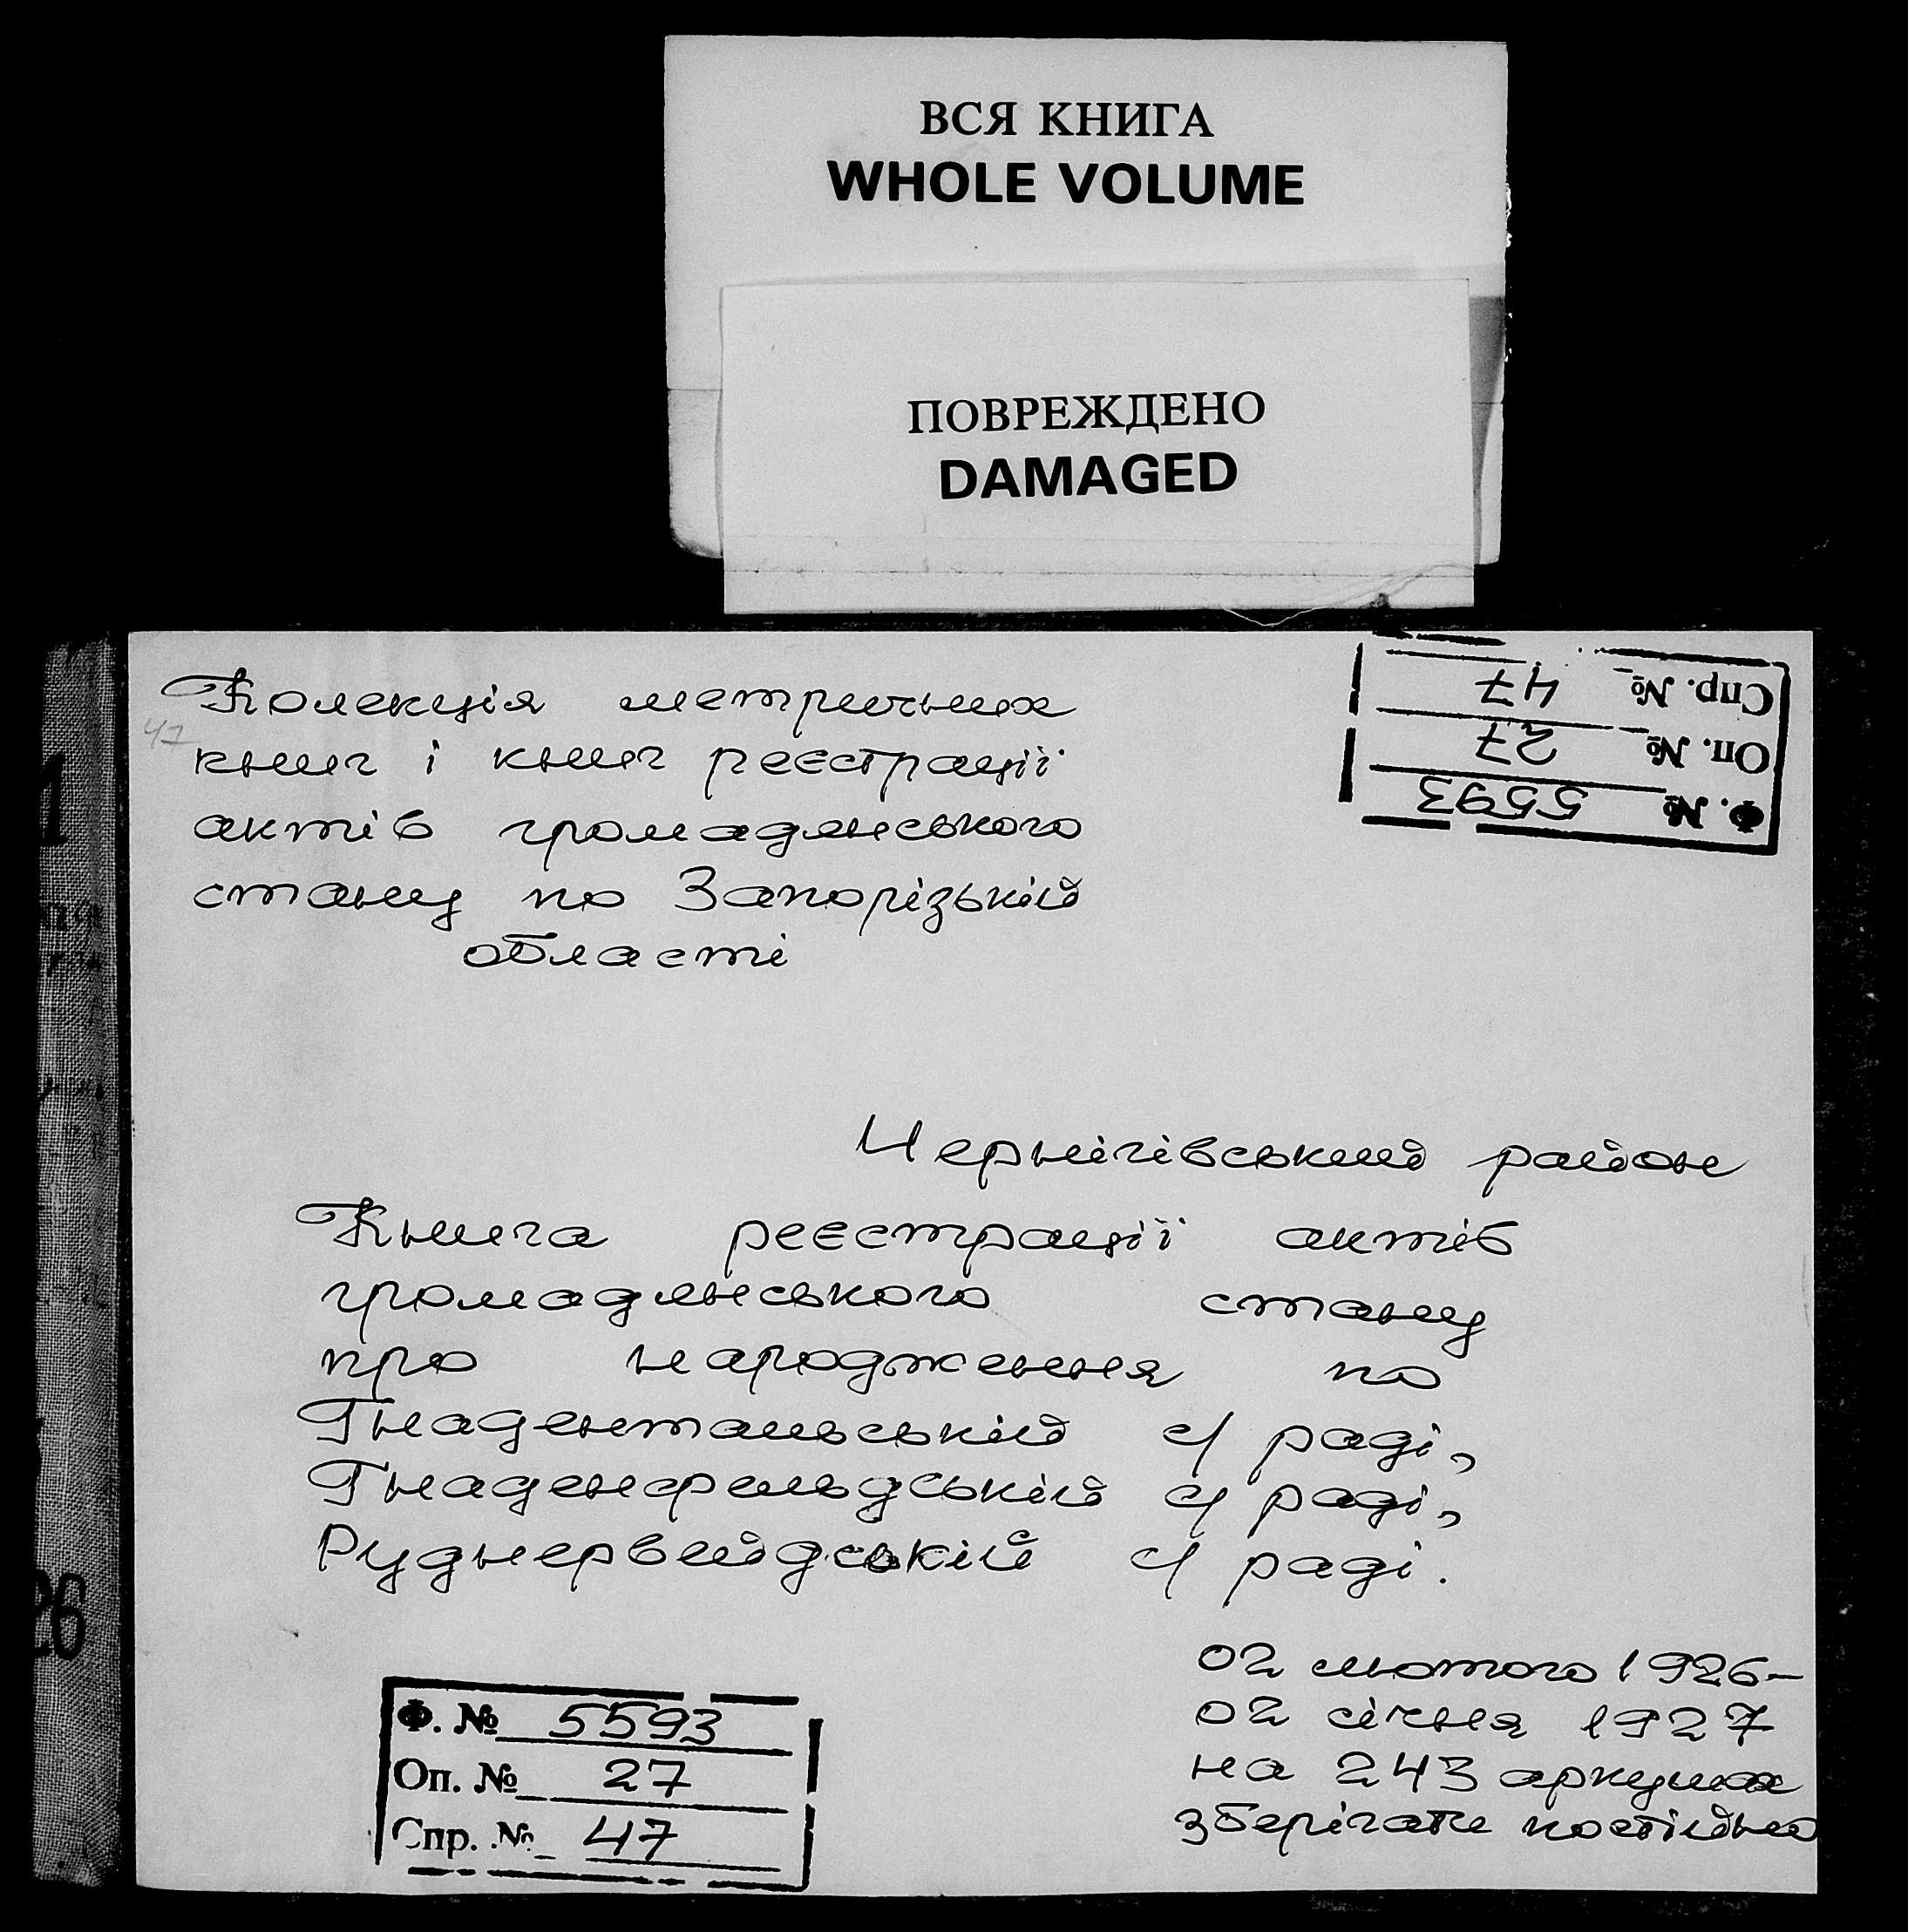 ВСЯ КНИГА
WHOLE VOLUME
ПОВРЕЖДЕНО
DAMAGED
Спр. № 47
Оп. № 27
Ф. № 5593
Колекція метричних
47
книг і книг реєстрації
актів громадянського
стану по Запорізькій
області
Чернігівський район
Книга реєстрації актів
громадянського стану
про народження по
Гнадентальській с/ раді,
Гнаденфельдській с/ раді,
Руднервейдській с/ раді.
02 лютого 1926-
02 січня 1927
на 243 аркушах
зберігати постійно
Ф. № 5593
Оп. № 27
Спр. № 47
26